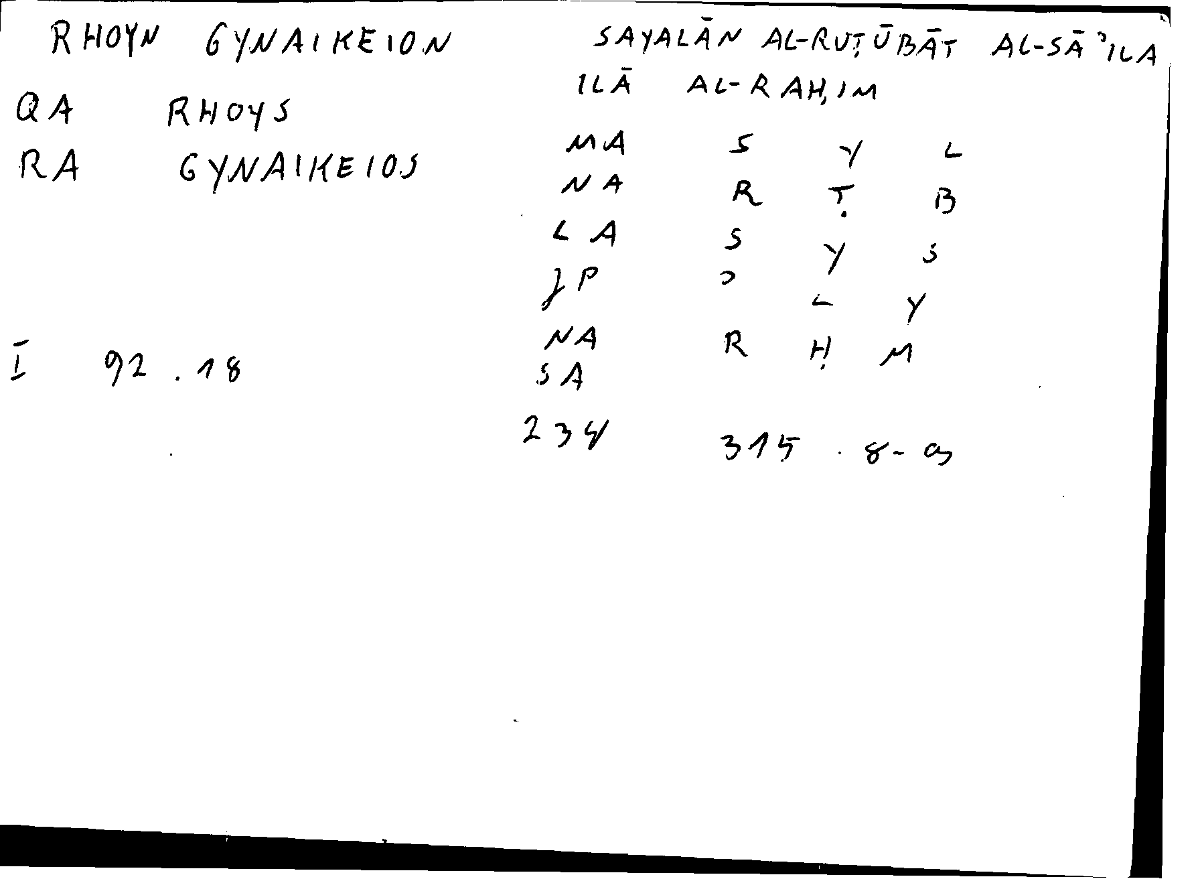 RHOYN GYNAIKEION
QA RHOYS
RA GYNAIKEIOS
I 92.18
SAYALĀN AL-RUṬŪBĀT AL-SĀʾILA
ILĀ AL-RAḤIM
MA S Y L
NA R Ṭ B
LA S Y S
JP ʾ L Y
NA R Ḥ M
SA
234 315.8-9